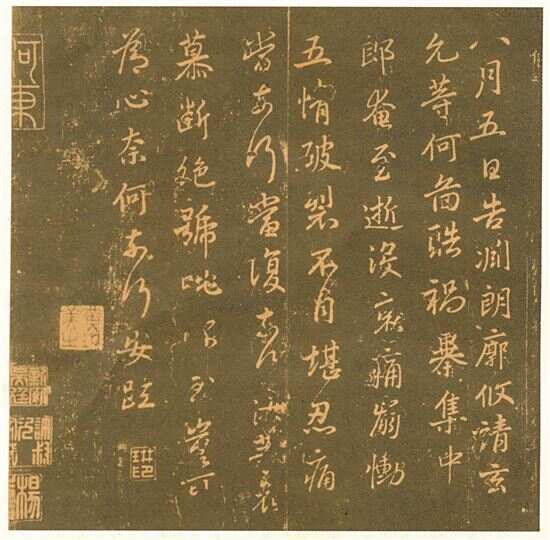 八月五日告淵朗廓攸靖玄
允等何圖酷禍暴集中
郎奄至逝沒哀痛崩慟
五情破裂不自堪忍痛
當奈何當復奈何汝等哀
慕斷絕號咷深至豈可
為心奈何奈何安疏
河東